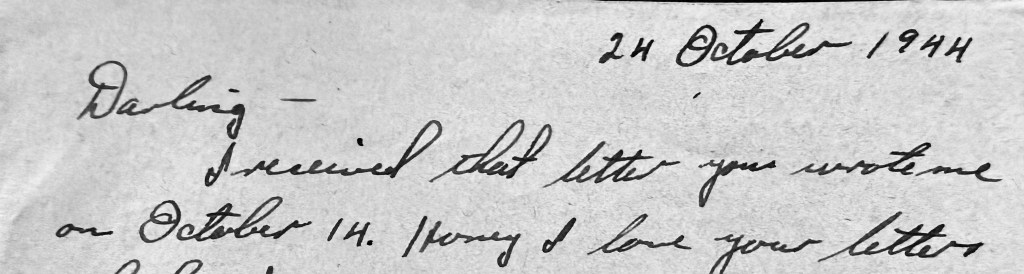 24 October 1944
Darling —
I received that letter you wrote me
on October 14. Honey I love your letters